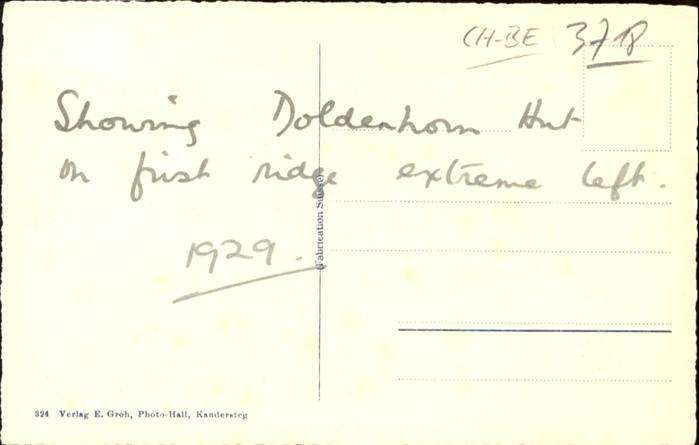 CH-BE 3718
Showing Doldenhorn Hut
on first ridge extreme left.
1929.
(Fabrication Suisse)
324 Verlag E. Groh, Photo-Hall, Kandersteg